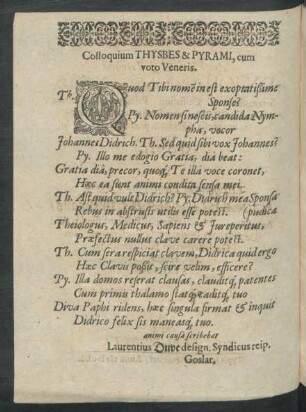 Colloquium THYSBES & PYRAMI, cum
voto Veneris.
Th. Quod Tibi nomē inest exoptatissime
Sponse?
Py. Nomen si nescis, candida Nym-
pha, vocor
Johannes Didrich. Th. Sed quid sibi vox Johannes?
Py. Illo me edogio Gratia, dia beat:
Gratia diā, precor, quoq́, Te illa voce coronet,
Hæc ea sunt animi condita sensa mei.
Th. Ast quid vult Didrich? Py. Didrich mea Sponsa
Rebus in abstrusis utilis esse potest. (pudica
Theiologus, Medicus, Sapiens & Jureperitus,
Præfectus nullus clave carere potest.
Th. Cum sera respiciat clavem, Didrica quid ergo
Hæc Clavis possit, scire velim, efficere?
Py. Illa domos reserat clausas, clauditq́, patentes
Cum primis thalamo statq́, caditq́, tuo
Diva Paphi ridens, hæc singula firmat & inquit
Didrico felix sis maneasq́, tuo.
animi causâ scribebat
Laurentius design. Syndicus reip.
Goslar.